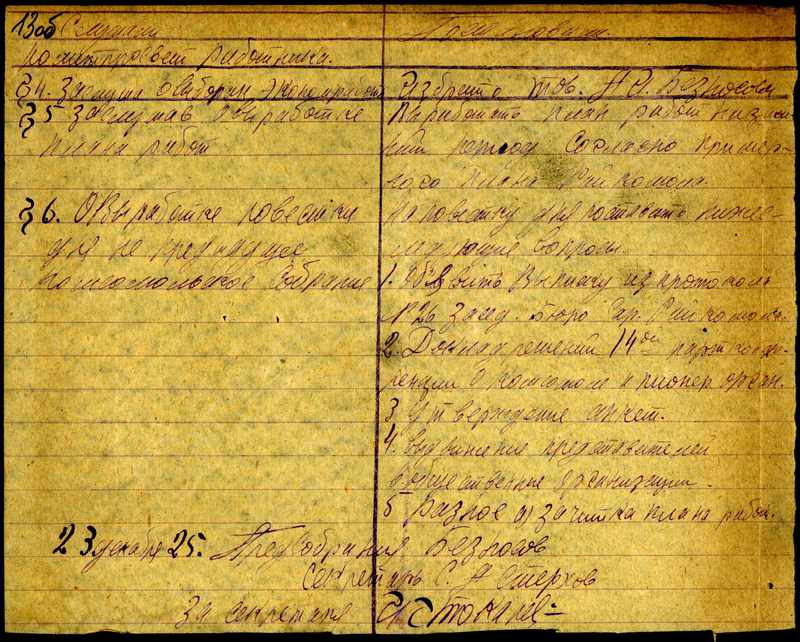 13об Слушали
Постановили
политпросвет работника.
§4. Заслуш о выборах экономработ
Избрать тов. Безносова
§5 Заслушав о выработке
плана работ
Выработать план работ
период согласно пример-
ного плана Райкомола.
§6. О выработке повестки
дня на
комсомольское собрание
На повестку дня поставить ниже-
следующие вопросы.
1. Объявить выписку из протокола
№26 засед. бюро Райкомола.
2. Доклад решений 14ой партконфе-
ренции о комсомоле и пионер орган.
3 Утверждение анкет.
4. выдвижение представителей
в общественные организации.
5 разное а) зачитка плана работ.
23 декабря 25. Предсобрания Безносов
Секретарь С. А Стерхов
За секретаря